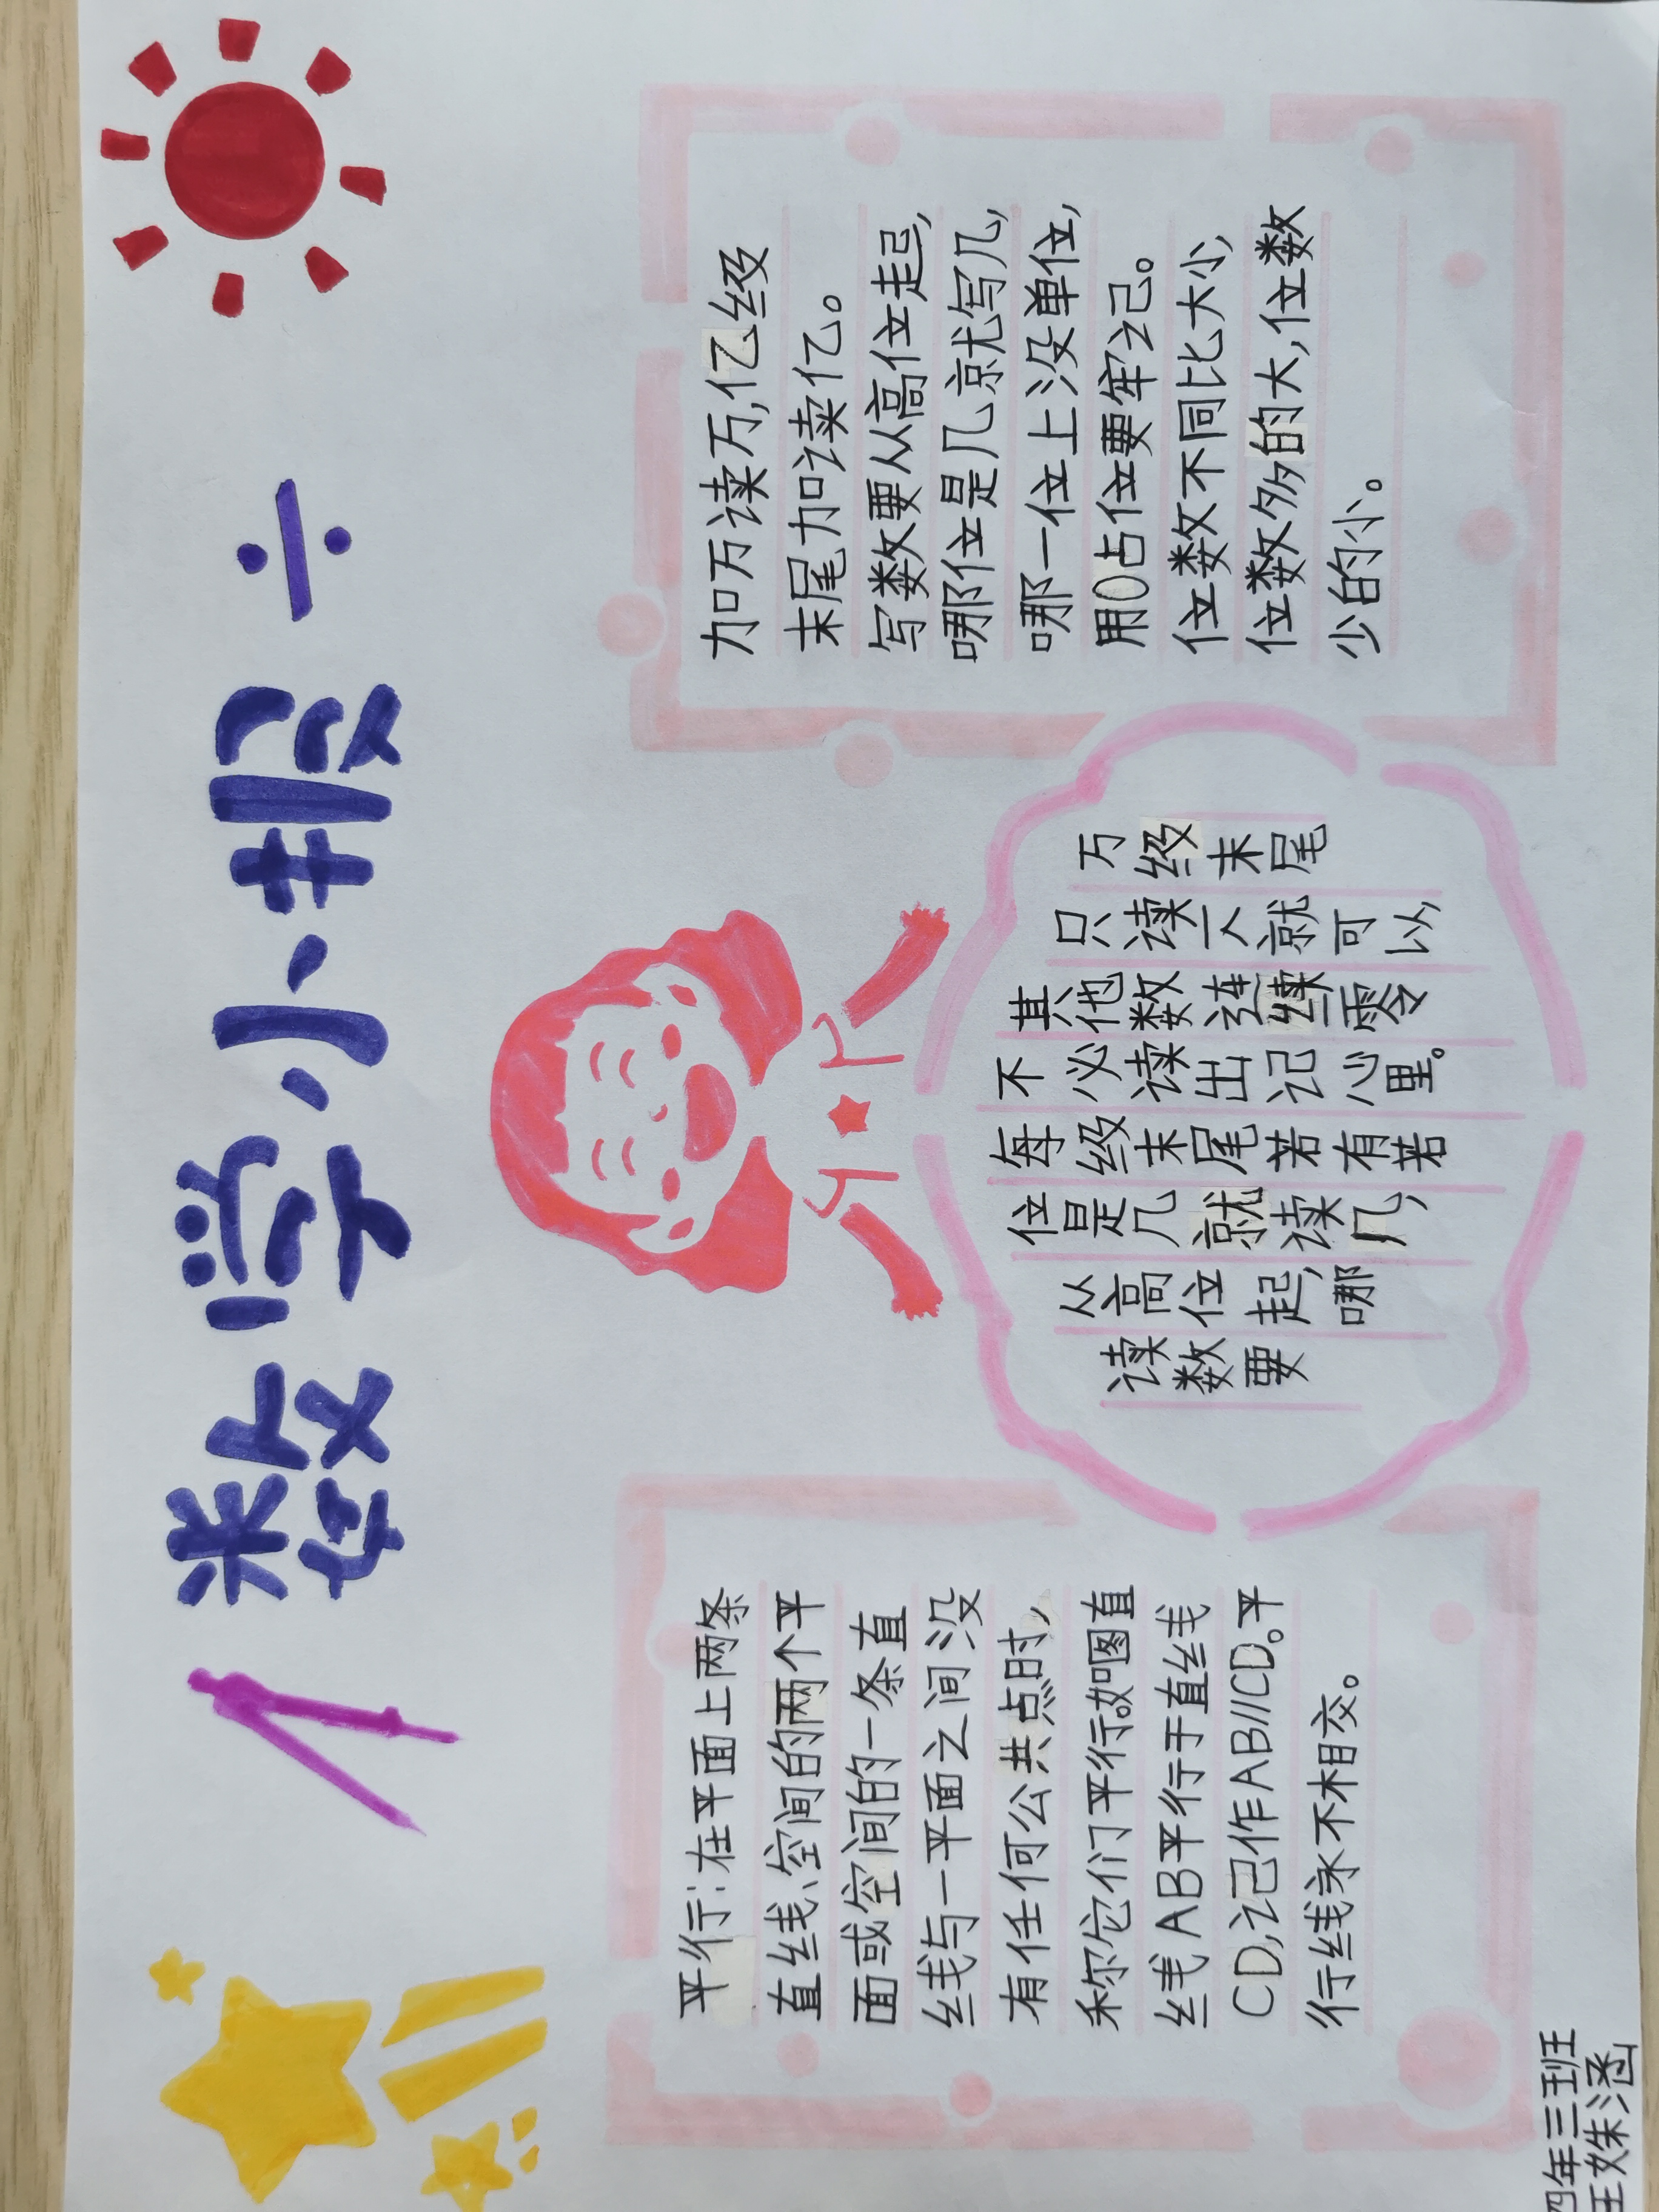 数学小报
÷
平行:在平面上两条
直线、空间的两个平
面或空间的一条直
线与一平面之间没
有任何公共点时,
称它们平行。如图直
线AB平行于直线
CD,记作AB//CD。平
行线永不相交。
读数要
从高位起,哪
位是几就读几,
每级末尾若有若
不必读出记心里。
其他数连续零
只读一个就可以,
万级末尾
加万读万,亿级
末尾加读亿。
写数要从高位起,
哪位是几就写几,
哪一位上没单位,
用0占位要牢记。
位数不同比大小,
位数多的大,位数
少的小。
四年三班
王姝涵